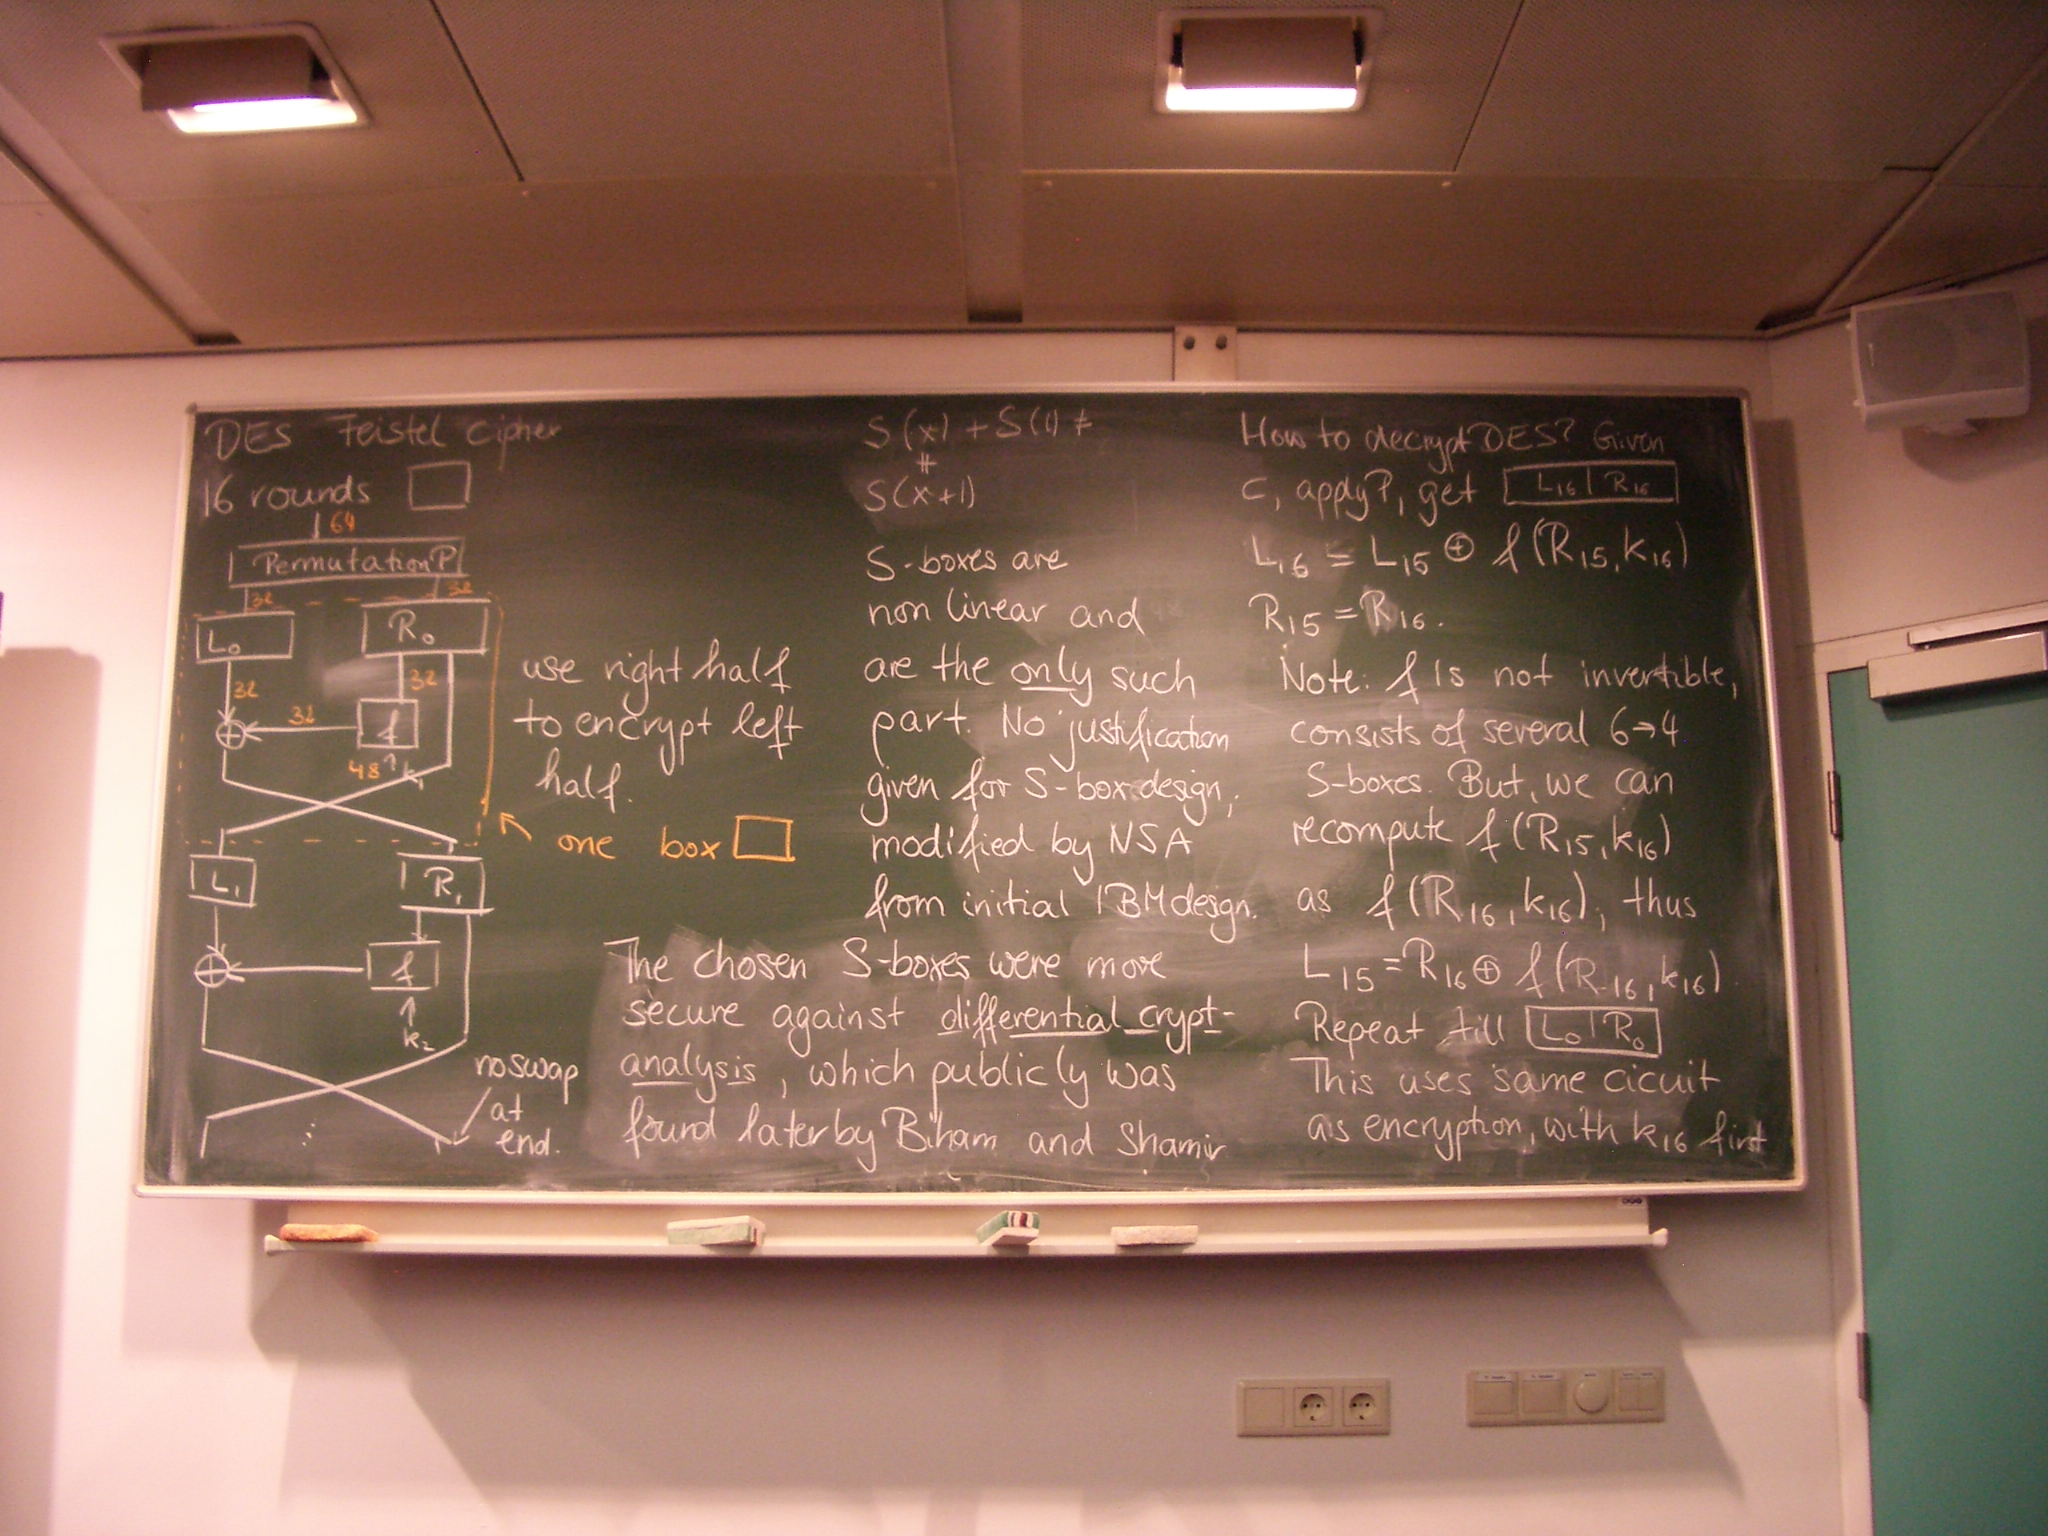 DES Feistel cipher
16 rounds
64
Permutation P
32 32
L₀ R₀
32 32
32 f
48 k₁
use right half
to encrypt left
half.
one box
L₁ R₁
f
k₂
no swap
at
end.
S(x) + S(1) ≠
S(x+1)
S-boxes are
non linear and
are the only such
part. No justification
given for S-box design,
modified by NSA
from initial IBM design.
The chosen S-boxes were more
secure against differential crypt-
analysis, which publicly was
found later by Biham and Shamir
How to decrypt DES? Given
C, apply P, get L₁₆ | R₁₆
L₁₆ = L₁₅ ⊕ f(R₁₅, k₁₆)
R₁₅ = R₁₆.
Note: f is not invertible,
consists of several 6→4
S-boxes. But, we can
recompute f(R₁₅, k₁₆)
as f(R₁₆, k₁₆); thus
L₁₅ = R₁₆ ⊕ f(R₁₆, k₁₆).
Repeat till L₀ | R₀
This uses same cicuit
as encryption, with k₁₆ first